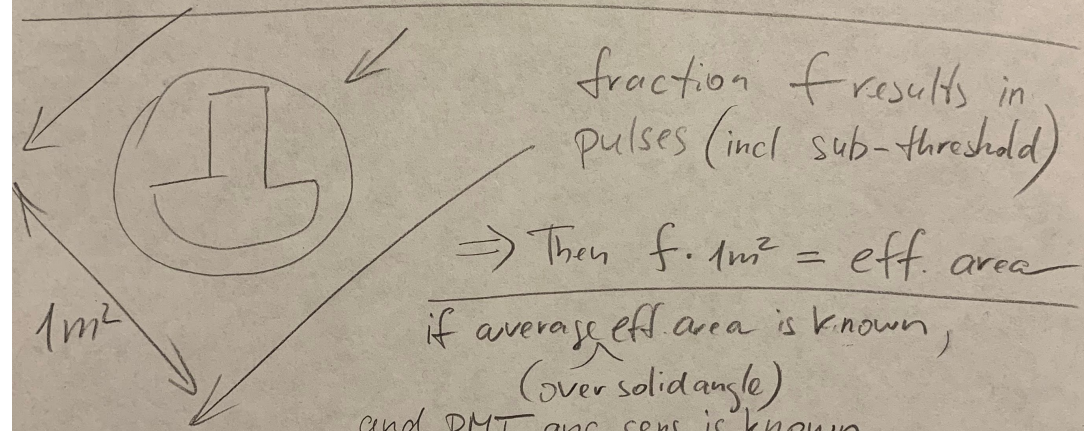 fraction f results in
pulses (incl sub-threshold)
⇒ Then f · 1m² = eff. area
1m²
if average eff. area is known,
(over solid angle)
and PMT ang sens is known